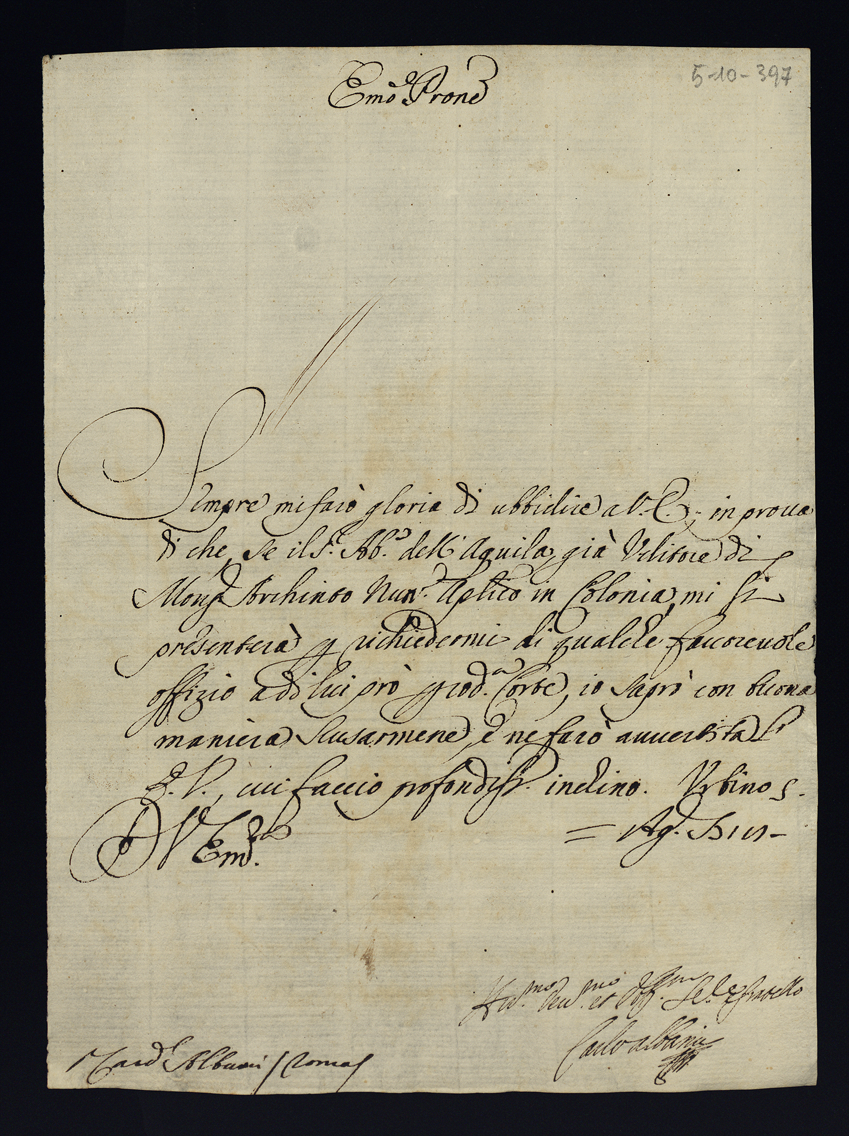 5-10-397
Emo. e Prone
Sempre mi farò gloria di ubbidire a V. E., in prova
di che, se il S.r Ab.e dell' Aquila, già Uditore di
Mons.r Archinto Nun.o Aplico in Colonia, mi si
presenterà p richiedermi di qualche favorevole
offizio a di lui prò pred.a Corte, io saprò con buona
maniera scusarmene, e ne farò avvertita l'
E. V., cui faccio profondiss. inchino. Urbino 5.
Ag.
D V. Em.za
Hu.mo Deu.mo et Obb.mo Se.re e fratello
Carlo Albani
Card.l Albani / Roma